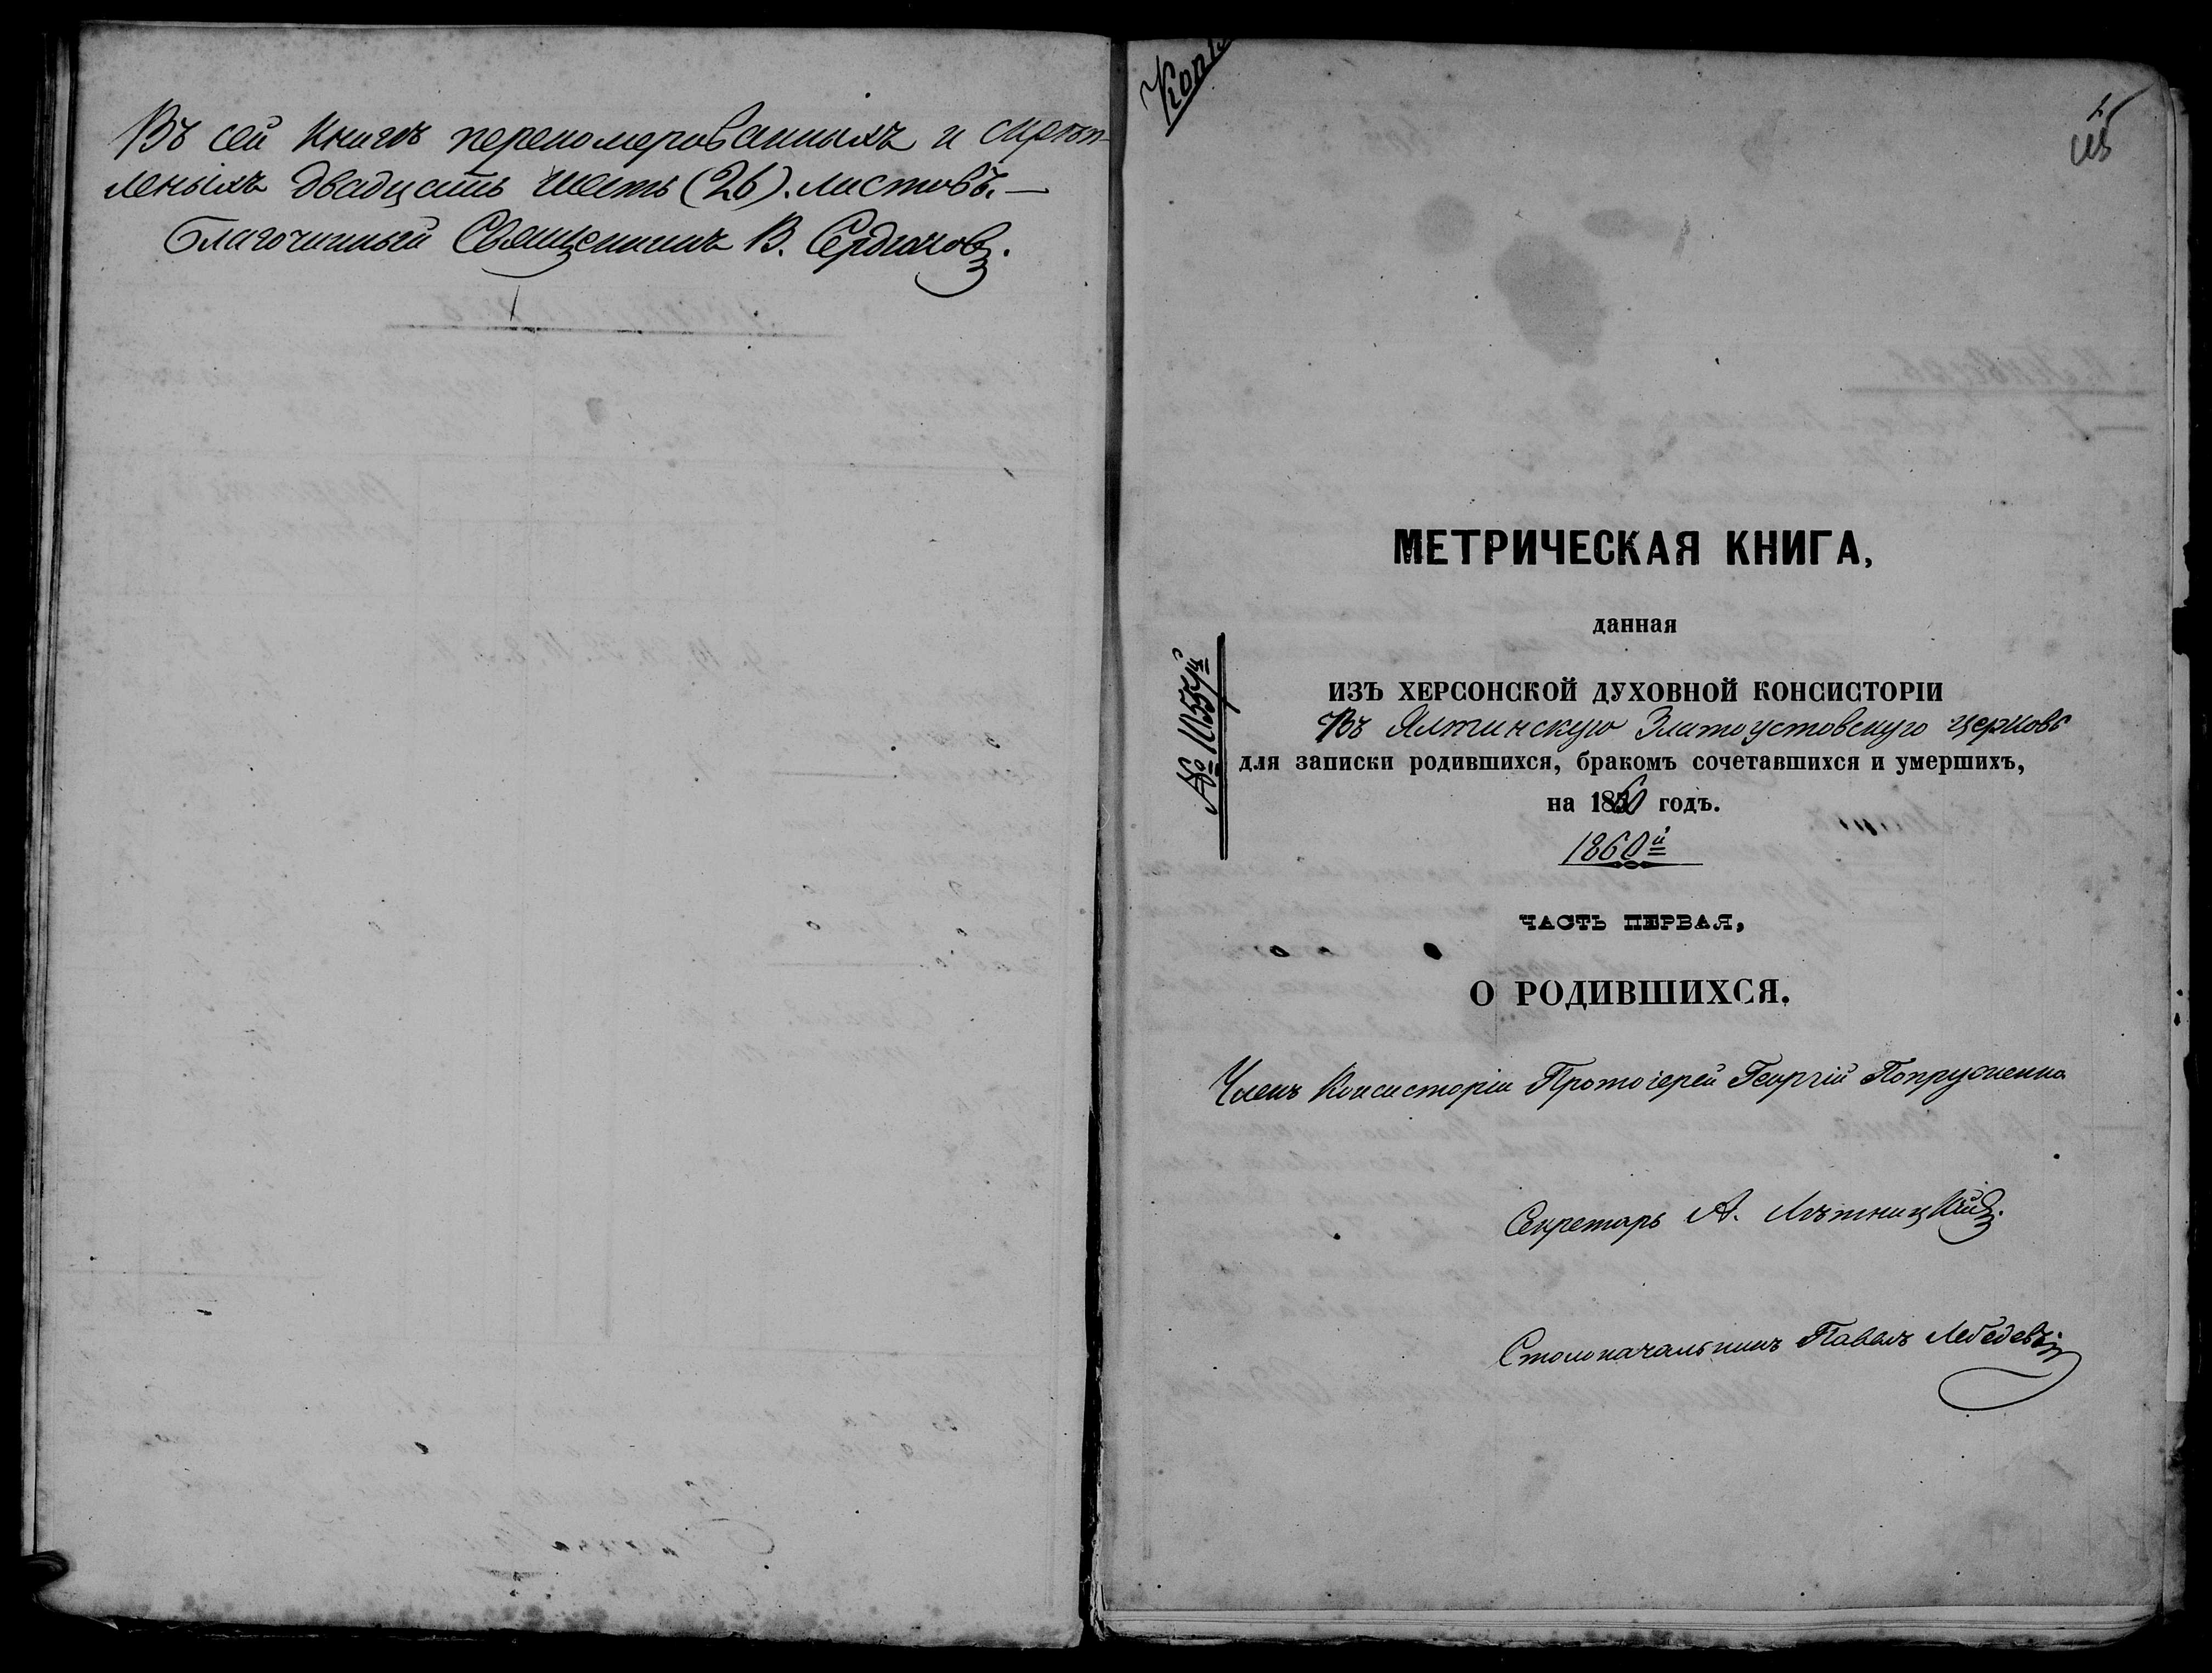 Въ сей книгѣ переномерованныхъ и скрѣп-
леныхъ двадцать шесть (26). листовъ.—
Благочинный Священникъ В. Сердюковъ.
Копія
МЕТРИЧЕСКАЯ КНИГА,
данная
ИЗЪ ХЕРСОНСКОЙ ДУХОВНОЙ КОНСИСТОРІИ
Въ Ялтинскую Златоустовскую церковь
для записки родившихся, бракомъ сочетавшихся и умершихъ,
на 1860 годъ.
1860й
№ 11557й
ЧАСТЬ ПЕРВАЯ,
О РОДИВШИХСЯ.
Членъ Консисторіи Протоіерей Георгій Попруженко
Секретарь А. Лѣтницкій.
Столоначальникъ Павелъ Лебедевъ